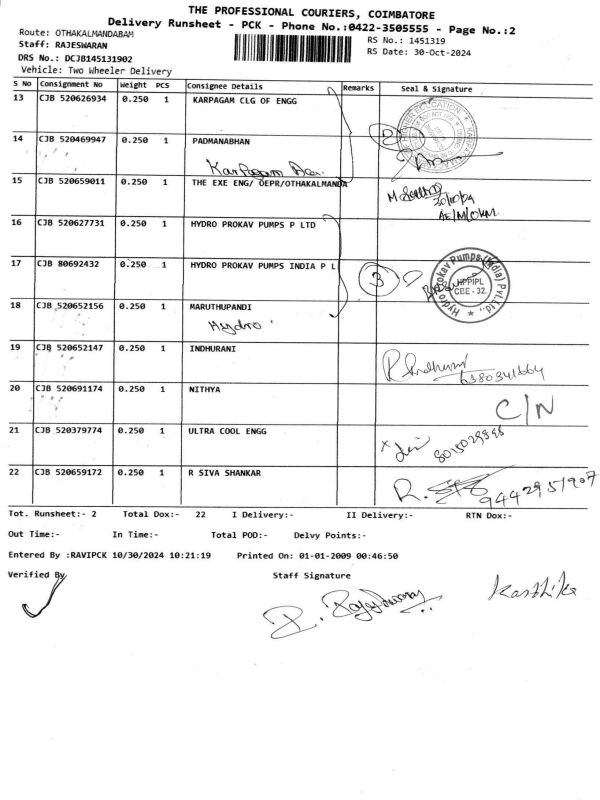 THE PROFESSIONAL COURIERS, COIMBATORE
Delivery Runsheet - PCK - Phone No.:0422-3505555 - Page No.:2
Route: OTHAKALMANDABAM
RS No.: 1451319
Staff: RAJESWARAN
RS Date: 30-Oct-2024
DRS No.: DCJB145131902
Vehicle: Two Wheeler Delivery
S No Consignment No Weight PCS Consignee Details Remarks Seal & Signature
13 CJB 520626934 0.250 1 KARPAGAM CLG OF ENGG
14 CJB 520469947 0.250 1 PADMANABHAN
2
Karpagam
15 CJB 520659011 0.250 1 THE EXE ENG/ OEPR/OTHAKALMANDA
30/10/24
AE/M/OKM
16 CJB 520627731 0.250 1 HYDRO PROKAV PUMPS P LTD
17 CJB 80692432 0.250 1 HYDRO PROKAV PUMPS INDIA P L
3
Hydro Prokav Pumps (India) Pvt.Ltd.,
HPPIPL
CBE - 32.
18 CJB 520652156 0.250 1 MARUTHUPANDI
Hydro
19 CJB 520652147 0.250 1 INDHURANI
6380341664
20 CJB 520691174 0.250 1 NITHYA
C/N
21 CJB 520379774 0.250 1 ULTRA COOL ENGG
22 CJB 520659172 0.250 1 R SIVA SHANKAR
9442951907
Tot. Runsheet:- 2 Total Dox:- 22 I Delivery:- II Delivery:- RTN Dox:-
Out Time:- In Time:- Total POD:- Delvy Points:-
Entered By :RAVIPCK 10/30/2024 10:21:19 Printed On: 01-01-2009 00:46:50
Verified By Staff Signature
Karthika